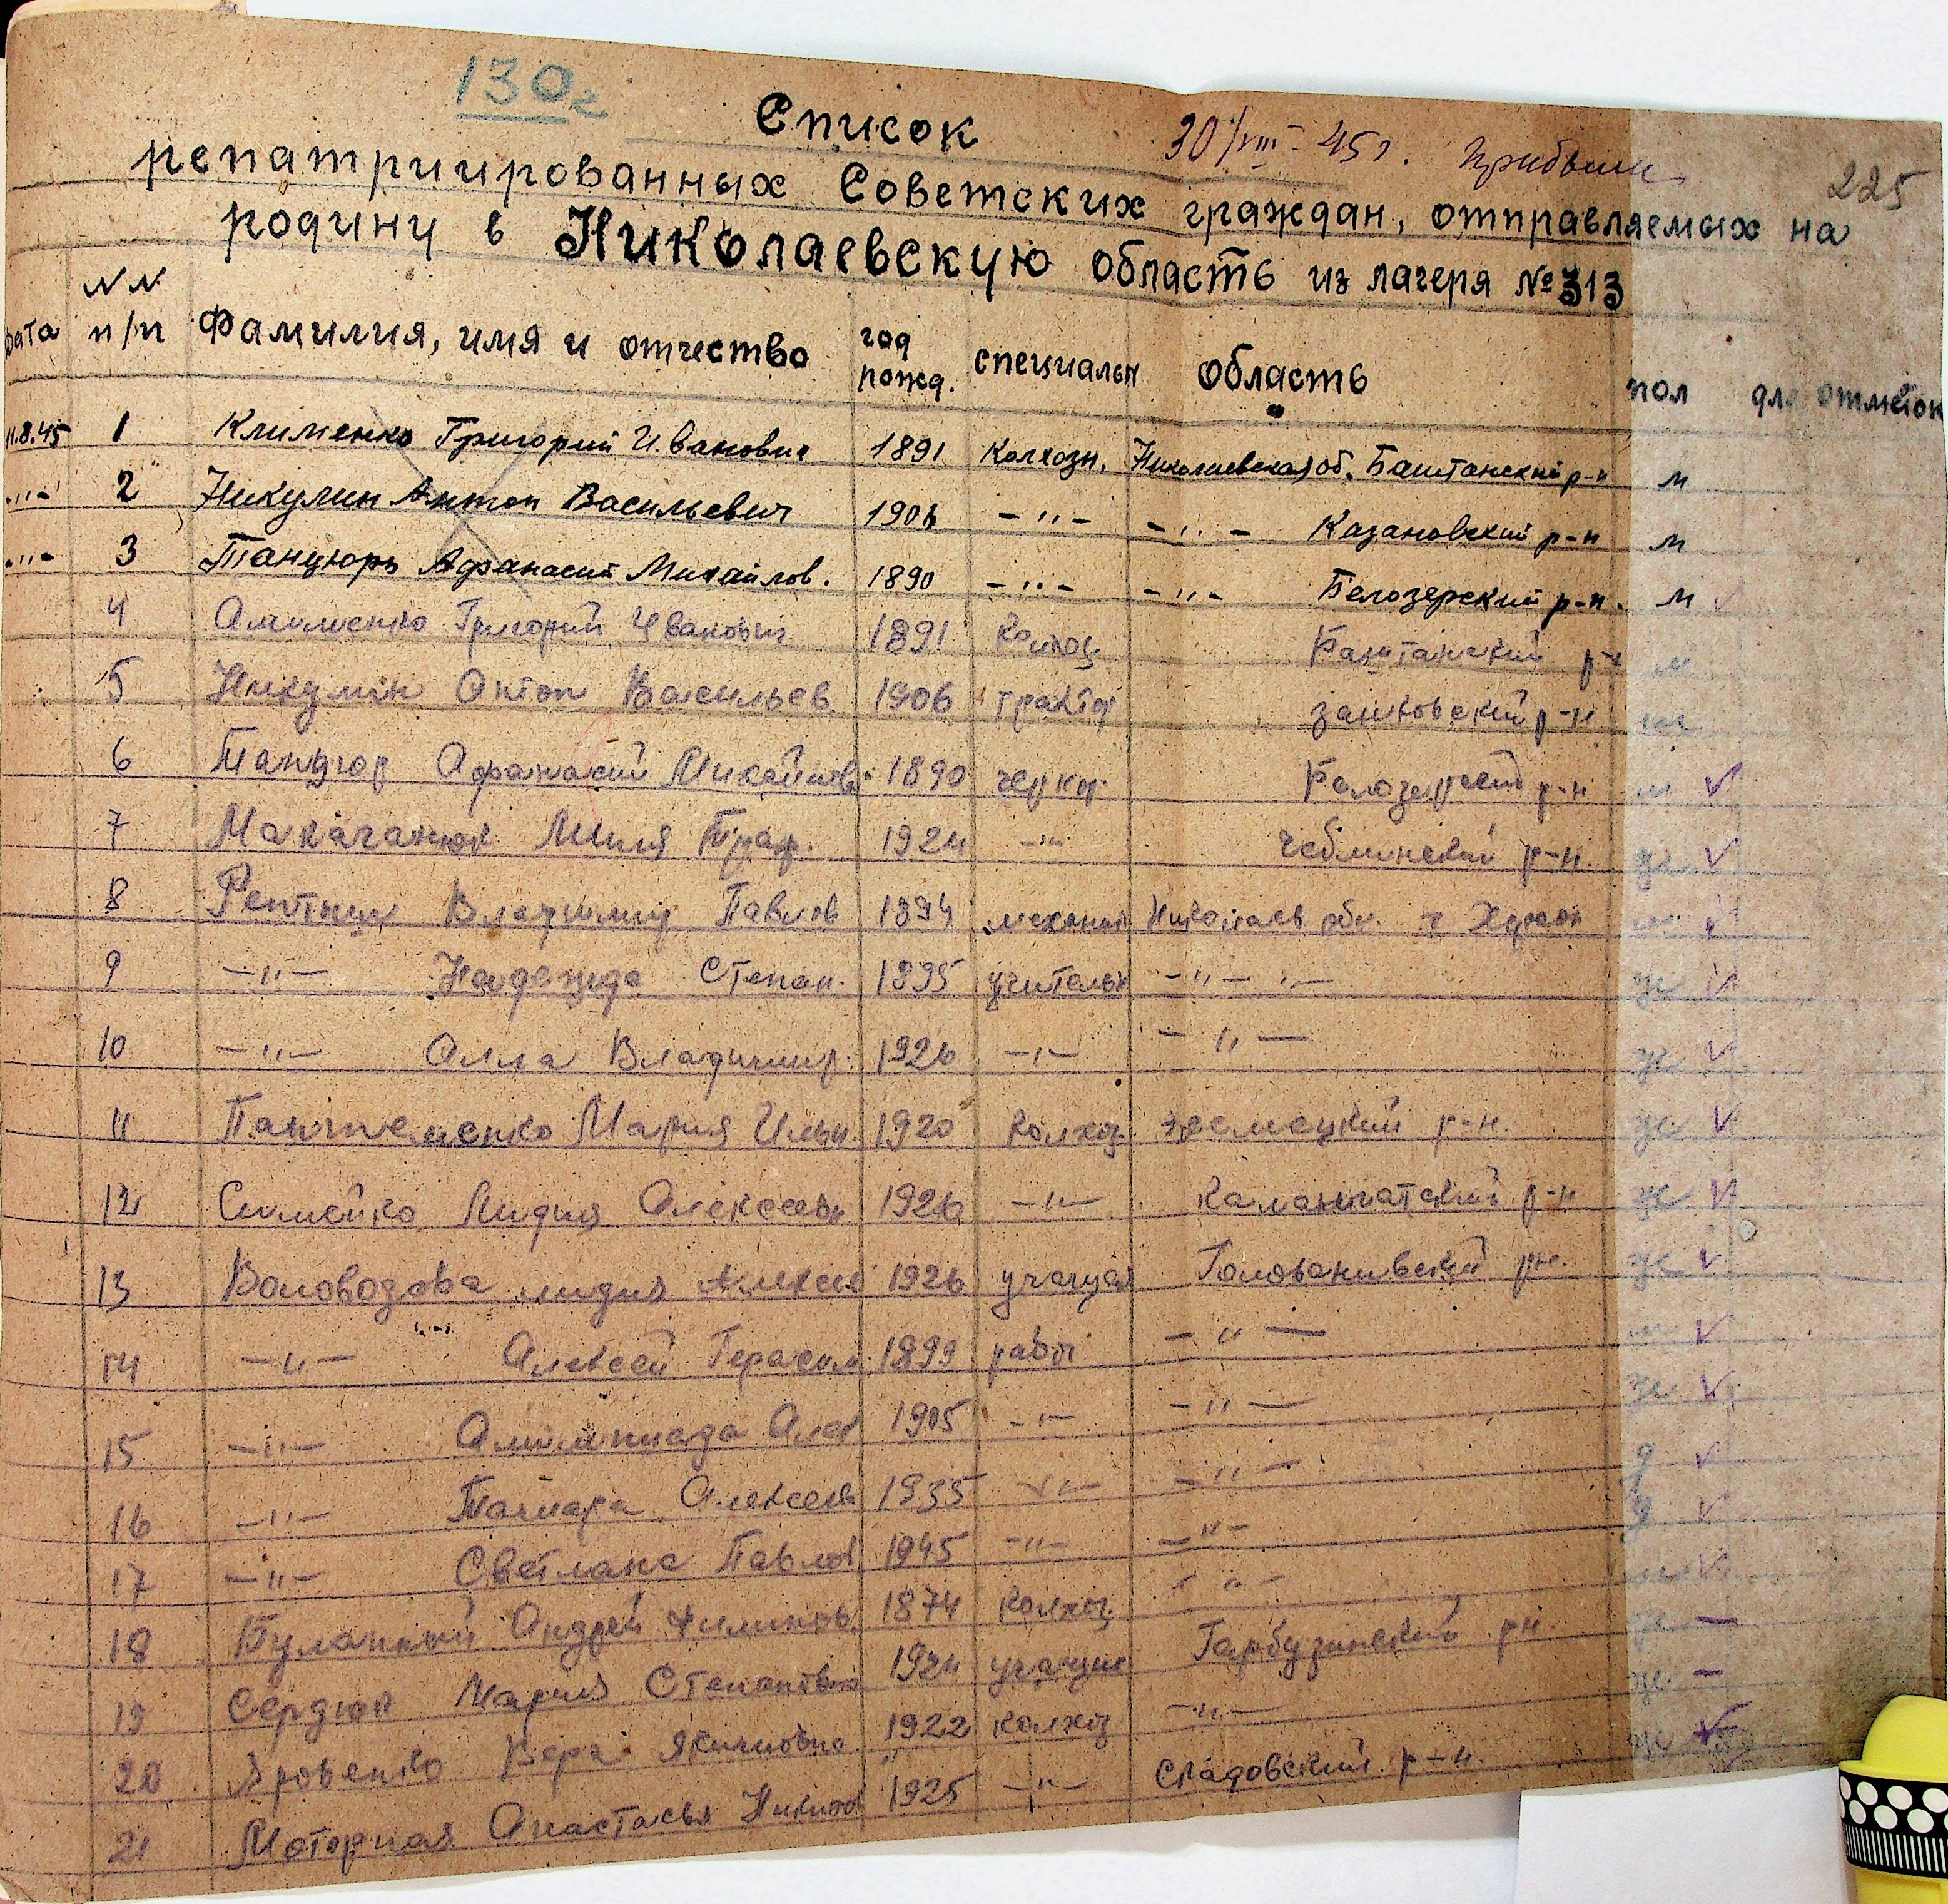 130г
Список
30/VIII-45г. Прибыли
225
репатриированных Советских граждан, отправляемых на
родину в Николаевскую область из лагеря №313
дата NN п/п Фамилия, имя и отчество год рожд. специальн область пол для отметок
11.8.45 1 Клименко Григорий Иванович 1891 Колхозн. Николаевская об. Баштанский р-н м
-"- 2 Никулин Антон Васильевич 1906 -"- -"- Казановский р-н м
-"- 3 Танцюрь Афанасий Михайлов. 1890 -"- -"- Белозерский р-н. м
4 Григорий Иванович 1891 Колхоз Баштанский р-н м
5 Никулин Антон Васильев 1906 тракт р-н м
6 Танцюр Афанасий Михайлов 1890 Белозерский р-н м ✓
7 Миля 1924 -"- р-н. ж ✓
8 Владимир Павлов 1894 механик Николаев обл. м ✓
9 -"- Надежда Степан. 1895 учительн -"- -"- ж ✓
10 -"- Алла Владимир. 1926 -"- -"- ж ✓
11 Пантеменко Мария Ильи. 1920 колхоз р-н. ж ✓
12 Симейко Лидия Алексеев 1926 -"- р-н ж ✓
13 Воловодова лидия Алексея 1926 учащая Голованивский р-н. ж ✓
14 -"- Алексей Герасим 1899 рабоч -"- м ✓
15 -"- Олимпиада Алек 1905 -"- -"- ж ✓
16 -"- Тамара Алексеев 1935 -"- -"- д ✓
17 -"- Светлана Павлов 1945 -"- -"- д ✓
18 Буланный Андрей Филипов. 1874 колхоз -"- м ✓
19 Сердюк Мария Степановна 1924 учащие Гарбузинский р-н. ж —
20 Яровенко Вера Якимовна 1922 колхоз -"- ж —
21 Моторная Анастасья Никитов 1925 -"- Сладовский р-н. ж ✓